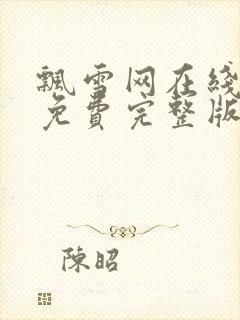 飄雪网在线
免費完整版
陳昭